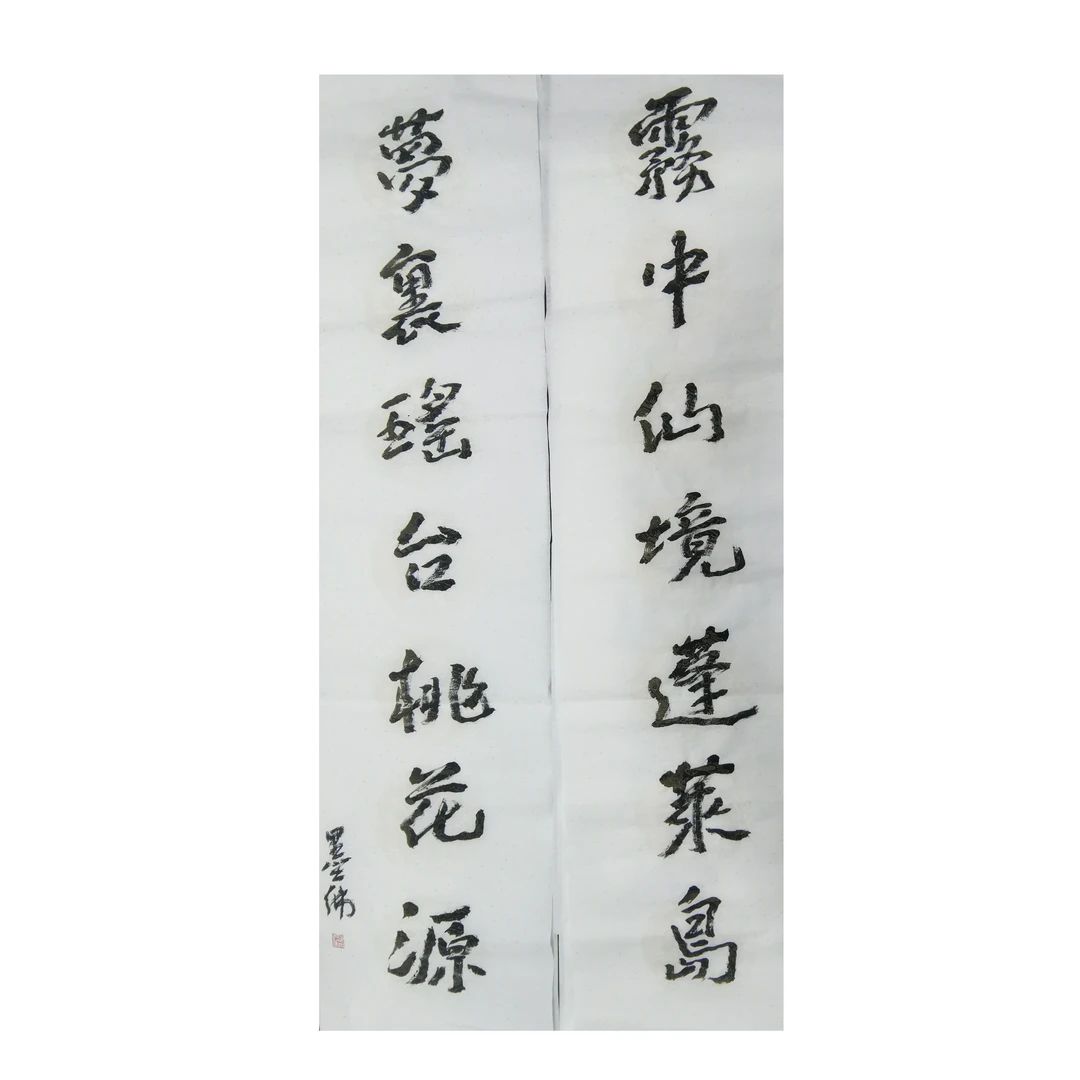 霧中仙境蓬萊島
夢裏瑤台桃花源
墨佛